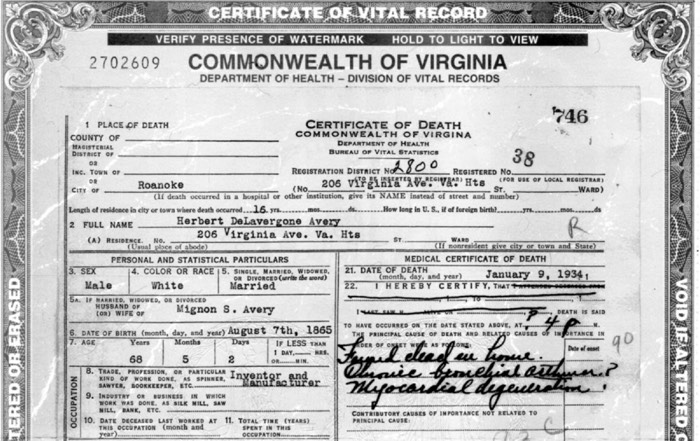 CERTIFICATE OF VITAL RECORD
VERIFY PRESENCE OF WATERMARK HOLD TO LIGHT TO VIEW
2702609
COMMONWEALTH OF VIRGINIA
DEPARTMENT OF HEALTH – DIVISION OF VITAL RECORDS
746
1 PLACE OF DEATH
CERTIFICATE OF DEATH
COUNTY OF
COMMONWEALTH OF VIRGINIA
MAGISTERIAL
DEPARTMENT OF HEALTH
DISTRICT OF
BUREAU OF VITAL STATISTICS
OR
INC. TOWN OF
REGISTRATION DISTRICT NO. 2800 REGISTERED NO. 38
OR
(TO BE INSERTED BY REGISTRAR) (FOR USE OF LOCAL REGISTRAR)
CITY OF Roanoke (No. 206 Virginia Ave. Va. Hts ST. WARD)
(If death occurred in a hospital or other institution, give its NAME instead of street and number)
Length of residence in city or town where death occurred 16 yrs. mos. ds. How long in U. S., if of foreign birth? yrs. mos. ds
2 FULL NAME Herbert DeLavergone Avery
R
(A) RESIDENCE. NO. 206 Virginia Ave. Va. Hts ST. WARD
(Usual place of abode) (If nonresident give city or town and State)
PERSONAL AND STATISTICAL PARTICULARS
3. SEX 4. COLOR OR RACE 5. SINGLE, MARRIED, WIDOWED, OR DIVORCED (write the word)
Male White Married
5A. IF MARRIED, WIDOWED, OR DIVORCED
HUSBAND OF
(OR) WIFE OF Mignon S. Avery
6. DATE OF BIRTH (month, day, and year) August 7th, 1865
7. AGE Years Months Days IF LESS THAN
1 DAY, HRS.
68 5 2 OR MIN.
OCCUPATION
8. TRADE, PROFESSION, OR PARTICULAR
KIND OF WORK DONE, AS SPINNER,
SAWYER, BOOKKEEPER, ETC.
Inventor and
Manufacturer
9. INDUSTRY OR BUSINESS IN WHICH
WORK WAS DONE, AS SILK MILL, SAW
MILL, BANK, ETC.
10. DATE DECEASED LAST WORKED AT
THIS OCCUPATION (month and
year)
11. TOTAL TIME (YEARS)
SPENT IN THIS
OCCUPATION
MEDICAL CERTIFICATE OF DEATH
21. DATE OF DEATH
(month, day, and year) January 9, 1934
22. I HEREBY CERTIFY, THAT
DEATH IS SAID
TO HAVE OCCURRED ON THE DATE STATED ABOVE, AT P 4 P M.
THE PRINCIPAL CAUSE OF DEATH AND RELATED CAUSES OF IMPORTANCE IN
ORDER OF ONSET WERE AS FOLLOWS:
Date of onset
90
Found dead in home.
Chronic bronchial asthma?
Myocardial degeneration
CONTRIBUTORY CAUSES OF IMPORTANCE NOT RELATED TO
PRINCIPAL CAUSE:
VOID IF ALTERED
TERED OR ERASED